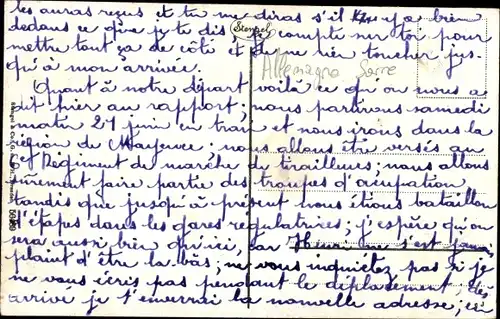 les auras reçus et tu me diras s'il y a bien
dedans ce que je te dis, je compte sur toi pour
Stempel
mettre tout ça de côté et de ne rien toucher jus-
qu'à mon arrivée.
Allemagne Sarre
Quant à notre départ voilà ce qu'on nous a
dit hier au rapport; nous partirons samedi
matin 21 juin en train et nous irons dans la
région de Mayence: nous allons être versés au
Régiment de marche de tirailleurs; nous allons
sûrement faire partie des troupes d'occupation
tandis que jusqu'à présent nous étions bataillon
d'étapes dans les gares régulatrices; j'espère qu'on
sera aussi bien qu'ici, car Henri ne s'est jamais
plaint d'être là-bas; ne vous inquiétez pas si je
ne vous écris pas pendant le déplacement; dès
arrivé je t'enverrai la nouvelle adresse; ici